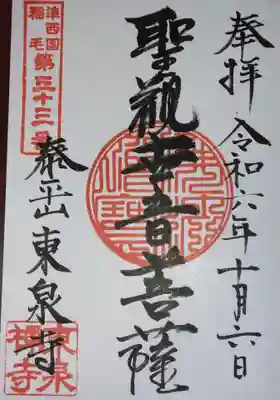 奉拝
令和六年十月六日
聖観世音菩薩
泰平山東泉寺
準西国
稲毛
第三十三番
東泉
禅寺